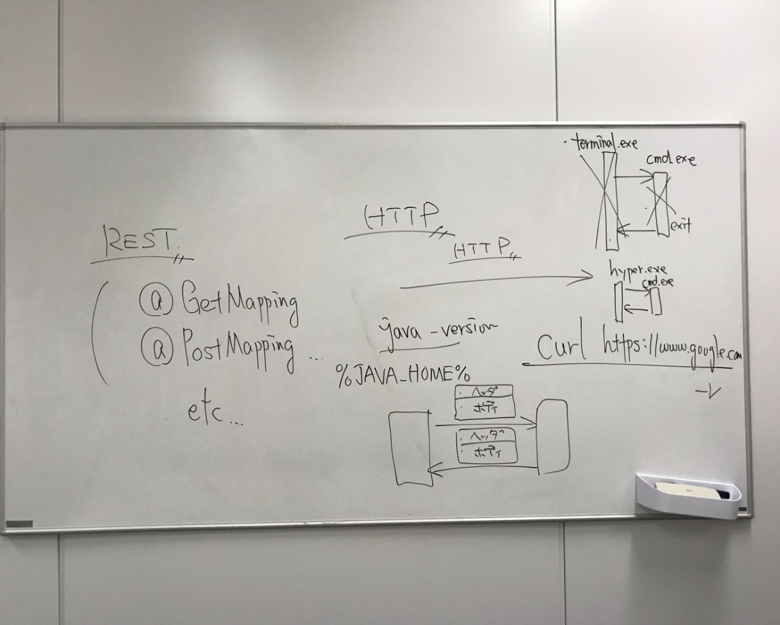 REST
@ GetMapping
@ PostMapping ...
etc...
HTTP
HTTP
java -version
%JAVA_HOME%
ヘッダ
ボディ
ヘッダ
ボディ
terminal.exe
cmd.exe
exit
hyper.exe
cmd.exe
curl https://www.google.com
-v